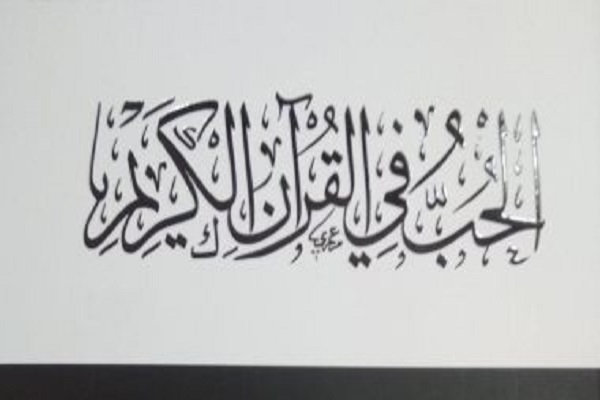 الْحُبُّ فِي الْقُرْآنِ الْكَرِيمِ